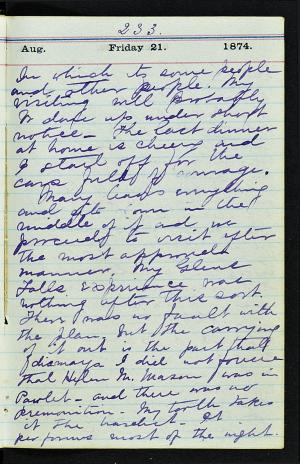 233.
Aug. Friday 21. 1874.
In which its some people
and other people. My
visiting will probably
be done up under short
notice - The last dinner
at home is cheery and
I start off for the
cars full of courage.
Mary leaves everything
and in the
middle of it and we
proceed to visit after
the most approved
manner. My Glens
Falls experience was
nothing after this sort.
There was no fault with
the plan, but the carrying
of it out is the part that
dismays. I did not foresee
that Helen M. Mason was in
Pawlet - and there was no
premonition - My tooth takes
it The hardest - It
performs most of the night.